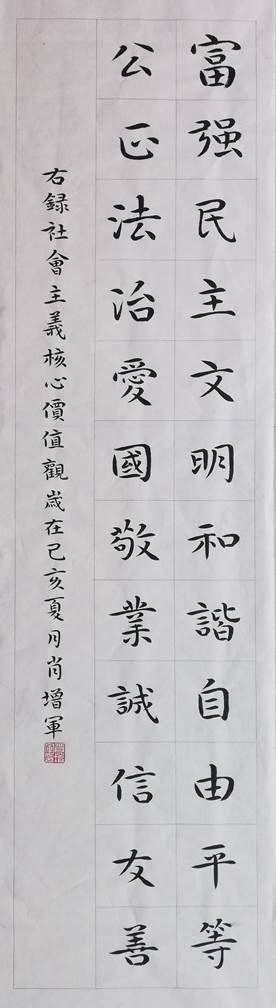 富强民主文明和諧自由平等
公正法治愛國敬業誠信友善
右録社會主義核心價值觀歲在己亥夏月肖增軍